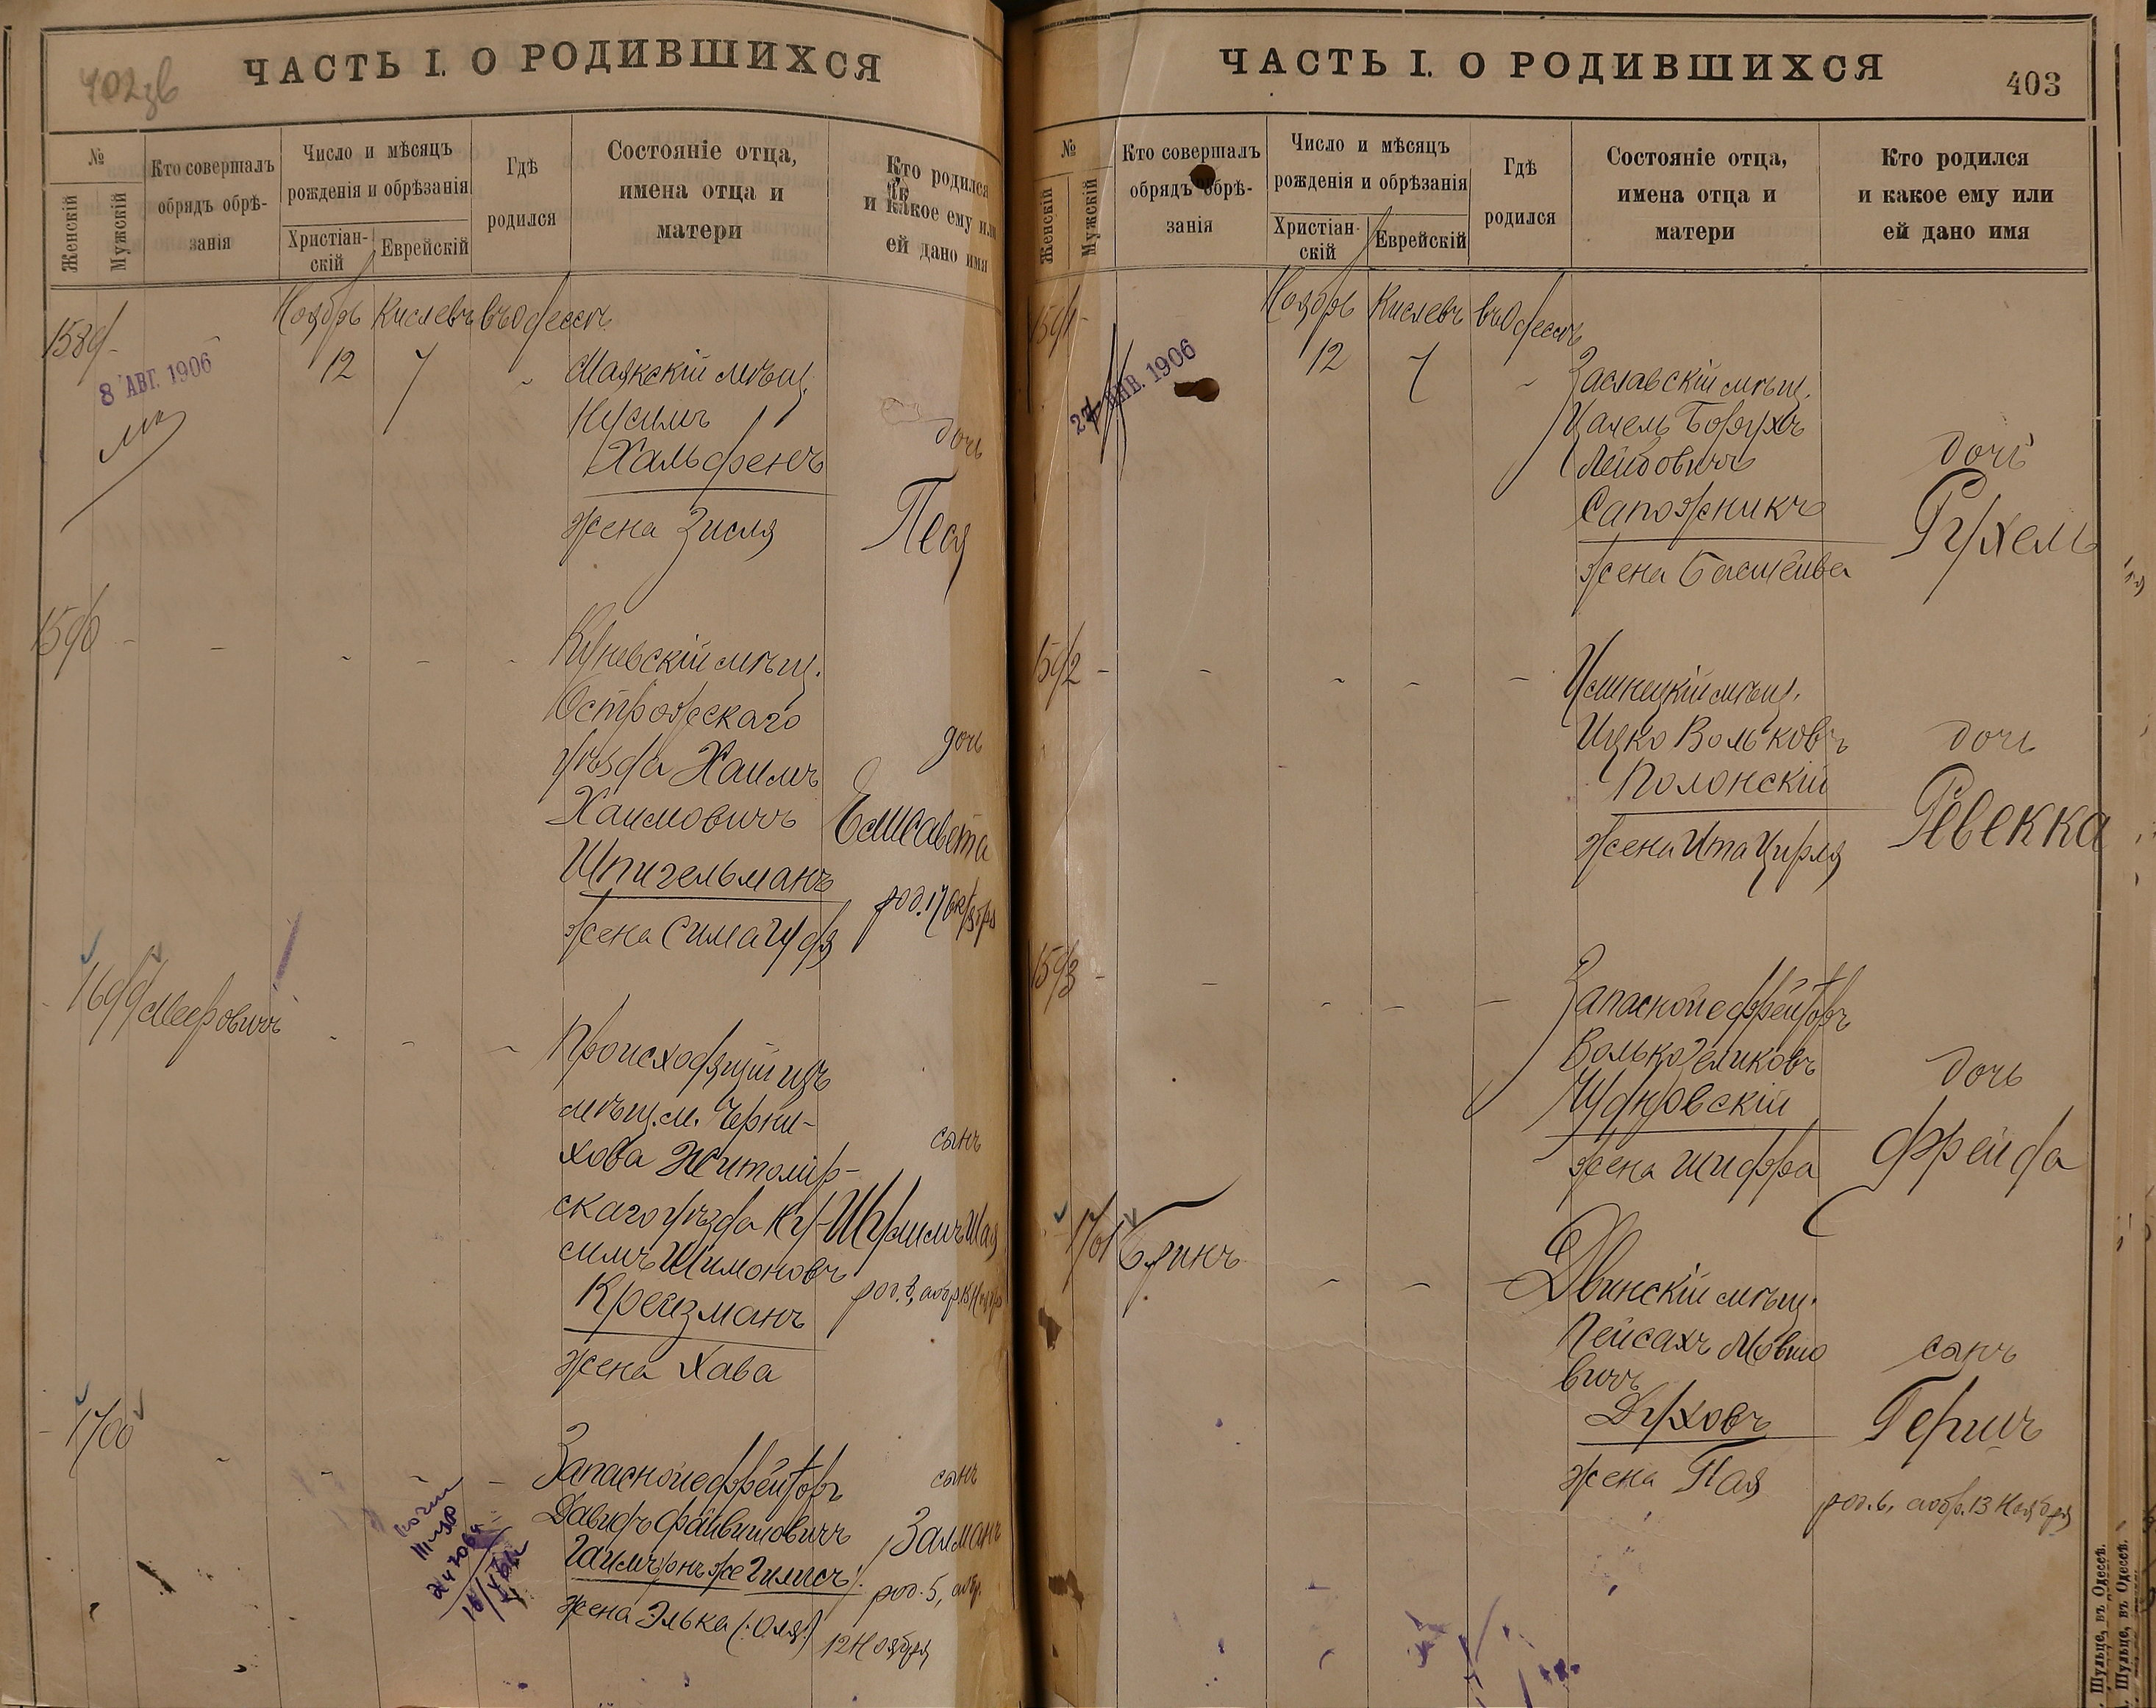 402 зв
ЧАСТЬ I. О РОДИВШИХСЯ
№
Женскій
Мужскій
Кто совершалъ
обрядъ обрѣ-
занія
Число и мѣсяцъ
рожденія и обрѣзанія
Христіан-
скій
Еврейскій
Гдѣ
родился
Состояніе отца,
имена отца и
матери
Кто родился
и какое ему или
ей дано имя
Ноябрь Кислевъ въ Одессѣ
1589 -
8 АВГ. 1906
12 7 - Маякскій мѣщ.
Нусимъ
Хальфенъ
жена Зисля
дочь
Песя
1590 - - - - -
Куневскій мѣщ.
Острожскаго
уѣзда Хаимъ
Хаимовичъ
Шпигельманъ
жена Сима Идя
дочь
Елисавета
род. 17 Октября
- 1699 Мееровичъ - - -
Происходящій изъ
мѣщ. м. Черни-
хова Житомір-
скаго уѣзда Ну-
симъ Шимоновъ
Крейзманъ
жена Хава
сынъ
Шулимъ Шая
род. 3, аобр. 13 Ноября
- 1700 - - - -
Запасной ефрейторъ
Давидъ Файвишовичъ
Гаимъ (онъ же Гимисъ).
жена Элька (: Оля :)
сынъ
Залманъ
род. 5, аобр.
12 Ноября
ЧАСТЬ I. О РОДИВШИХСЯ
403
№
Женскій
Мужскій
Кто совершалъ
обрядъ обрѣ-
занія
Число и мѣсяцъ
рожденія и обрѣзанія
Христіан-
скій
Еврейскій
Гдѣ
родился
Состояніе отца,
имена отца и
матери
Кто родился
и какое ему или
ей дано имя
Ноябрь Кислевъ въ Одессѣ
1591 -
27 ЯНВ. 1906
12 7 -
Заславскій мѣщ.
Цалель Борухъ
Лейбовичъ
Сапожникъ
жена Басшейва
дочь
Рухель
1592 - - - - -
Цолинецкій мѣщ.
Ицко Вольковъ
Полонскій
жена Ита Цирля
дочь
Ревекка
1593 - - - - -
Запасной ефрейторъ
Волько Зеликовъ
Чудновскій
жена Шифра
дочь
Фрейда
1701 Бринъ - -
Двинскій мѣщ.
Пейсахъ Мовшо
вичъ
Духовъ
жена Пая
сынъ
Гершъ
род. 6, аобр. 13 Ноября
Шульце, въ Одессѣ.
Шульце, въ Одессѣ.